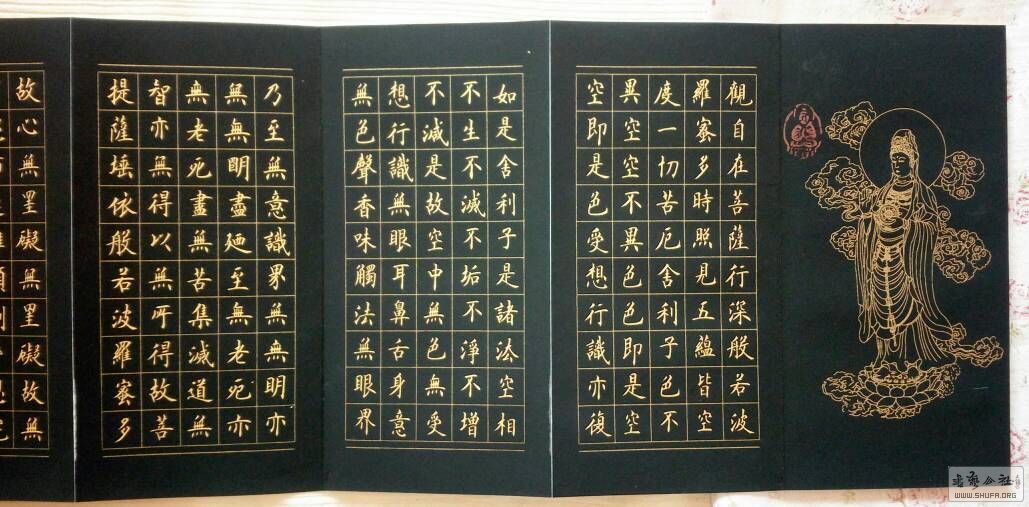 觀自在菩薩行深般若波
羅蜜多時照見五蘊皆空
度一切苦厄舍利子色不
異空空不異色色即是空
空即是色受想行識亦復
如是舍利子是諸法空相
不生不滅不垢不淨不增
不減是故空中無色無受
想行識無眼耳鼻舌身意
無色聲香味觸法無眼界
乃至無意識界無無明亦
無無明盡廼至無老死亦
無老死盡無苦集滅道無
智亦無得以無所得故菩
提薩埵依般若波羅蜜多
故心無罣礙無罣礙故無
WWW.SHUFA.ORG